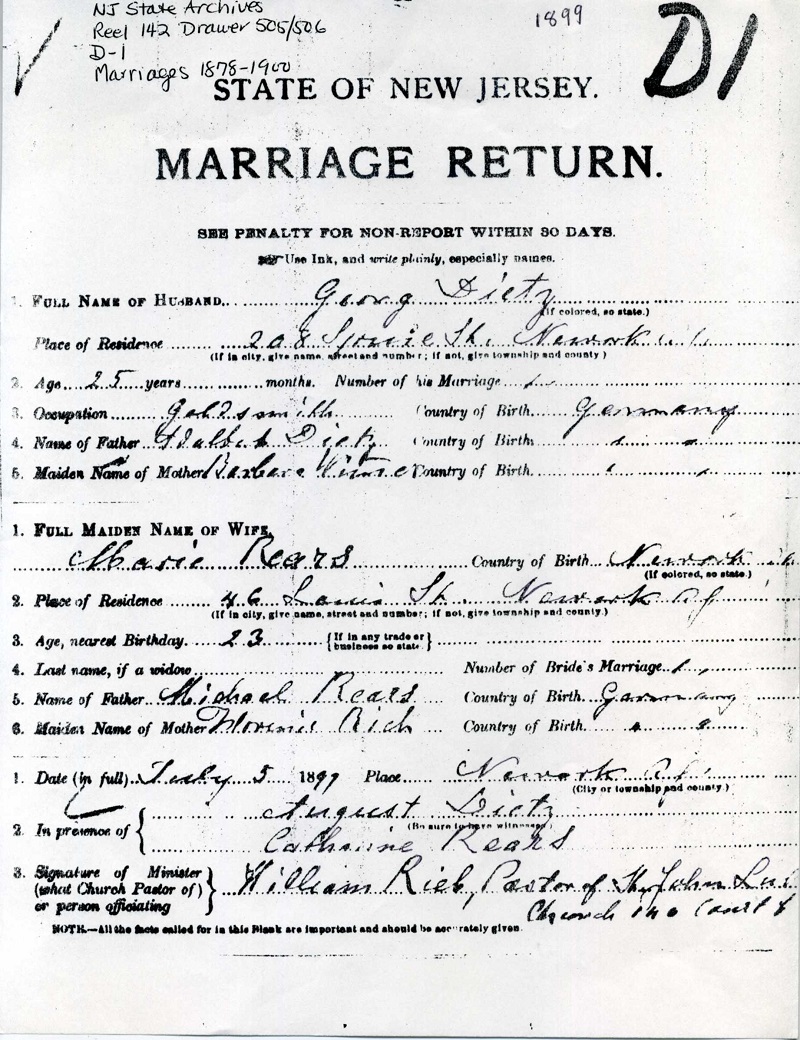 NJ State Archives
Reel 142 Drawer 505/506
D-1
Marriages 1878-1900
1899
D1
STATE OF NEW JERSEY.
MARRIAGE RETURN.
SEE PENALTY FOR NON-REPORT WITHIN 30 DAYS.
Use Ink, and write plainly, especially names.
1. FULL NAME OF HUSBAND. Georg Dietz
(If colored, so state.)
Place of Residence 208 St. Newark
(If in city, give name, street and number; if not, give township and county)
2. Age 25 years months. Number of his Marriage 1
3. Occupation Goldsmith Country of Birth Germany
4. Name of Father Dietz Country of Birth " "
5. Maiden Name of Mother Barbara Country of Birth " "
1. FULL MAIDEN NAME OF WIFE,
Marie Rears Country of Birth Newark
(If colored, so state.)
2. Place of Residence 46 St. Newark NJ
(If in city, give name, street and number; if not, give township and county.)
3. Age, nearest Birthday. 23 {If in any trade or business so state.}
4. Last name, if a widow Number of Bride's Marriage 1
5. Name of Father Michael Rears Country of Birth Germany
6. Maiden Name of Mother Rich Country of Birth " "
1. Date (in full) July 5 1899 Place Newark NJ
(City or township and county.)
2. In presence of { August Dietz
(Be sure to have witnesses)
Cathrine Rears
3. Signature of Minister
(what Church Pastor of)
or person officiating
} William Rieb, Pastor of St. John
Church Court
NOTE.—All the facts called for in this Blank are important and should be accurately given.